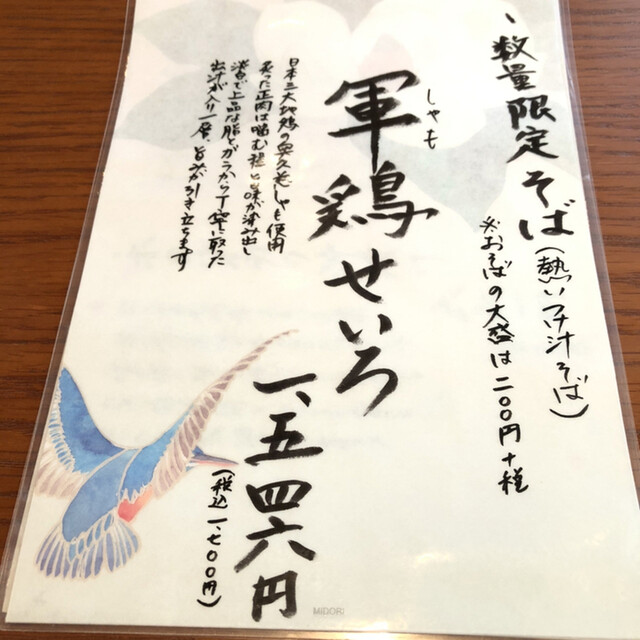 数量限定そば(熱いつけ汁そば)
※おそばの大盛は二〇〇円+税
しゃも
軍鶏せいろ
一、五四六円
(税込一、七〇〇円)
日本三大地鶏の奥久慈しゃも使用
炙った正肉は噛む程に味が染み出し
淡白で上品な脂とガラから丁寧に取った
出汁が入り一層、旨みが引き立ちます
MIDORI